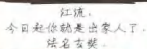 红流，
今日起你就是出家人了，
法名玄奘．